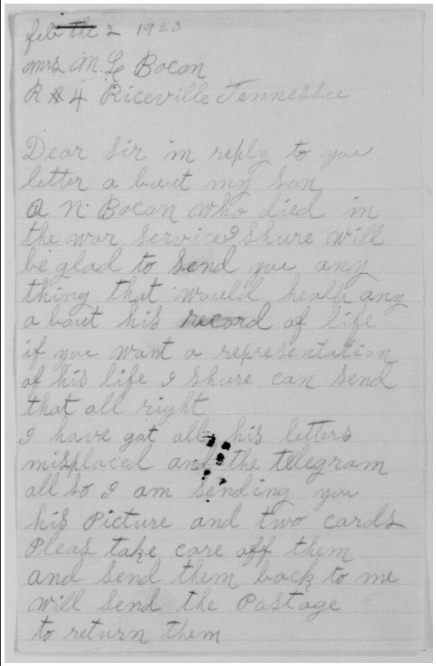 feb the 2 1923
mrs M. L Bocan
R # 4 Riceville Tennessee
Dear Sir in reply to you
letter a bout my son
A N. Bocan who died in
the war service I Shure will
be glad to send you any
thing that would healp any
a bout his record of life
if you want a representation
of his life I Shure can send
that all right
I have got all his letters
misplacel and the telegram
all so I am sending you
his Picture and two cards
Pleas take care off them
and send them back to me
will send the Postage
to return them